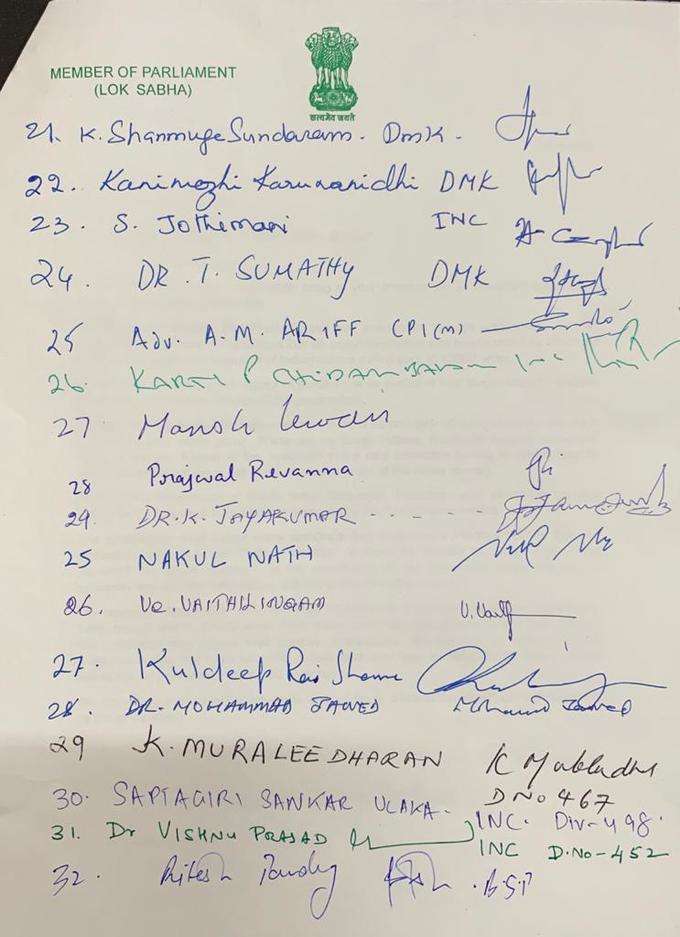 MEMBER OF PARLIAMENT
(LOK SABHA)
सत्यमेव जयते
21. K. Shanmuga Sundaram. DMK.
22. Kanimozhi Karunanidhi DMK
23. S. Jothimani INC
24. DR. T. SUMATHY DMK
25 Adv. A.M. ARIFF CPI(M)
26. KARTI P CHIDAMBARAM INC
27 Manish Tewari
28 Prajwal Revanna
29. DR. K. JAYAKUMAR
25 NAKUL NATH
26. Ve. VAITHILINGAM
27. Kuldeep Rai Sharma
28. DR. MOHAMMAD JAWED Mohammad Jawed
29 K. MURALEEDHARAN
DNo 467
30. SAPTAGIRI SANKAR ULAKA. INC. Div-498.
31. Dr VISHNU PRASAD INC D.No-452
32. Ritesh Pandey B.S.P